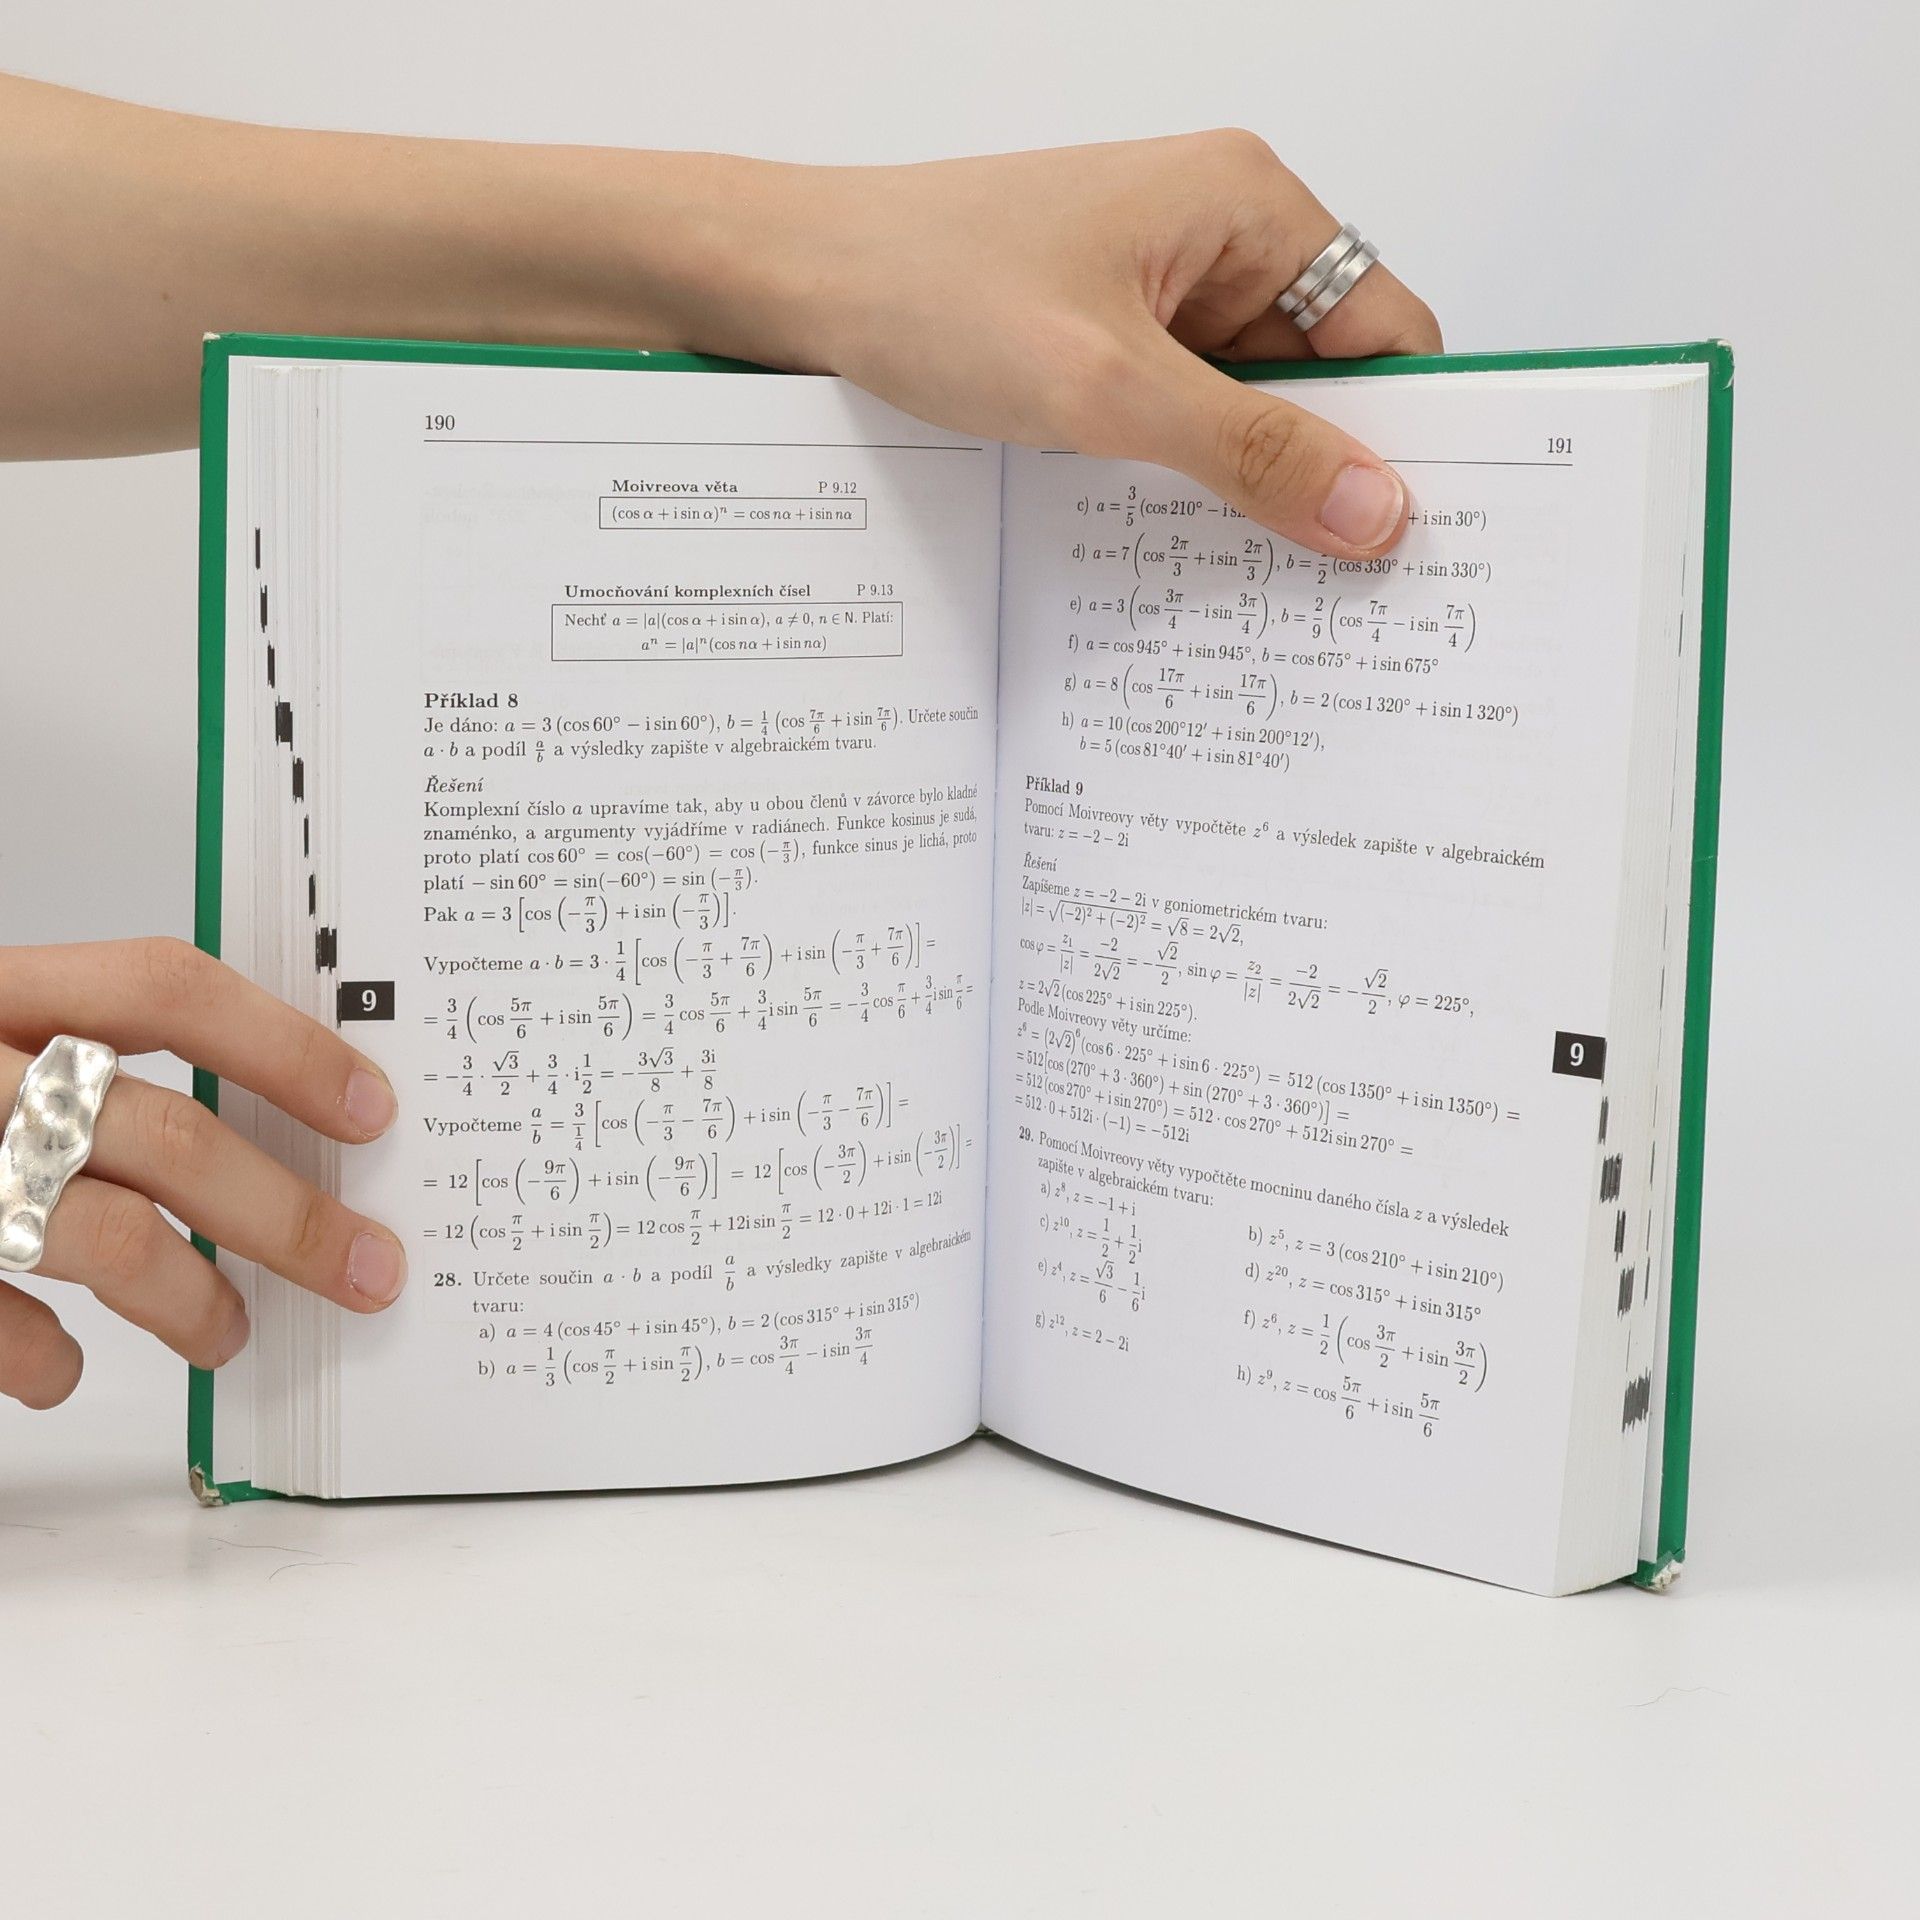 190
Moivreova věta P 9.12
(cos α + i sin α)ⁿ = cos nα + i sin nα
Umocňování komplexních čísel P 9.13
Nechť a = |a|(cos α + i sin α), a ≠ 0, n ∈ N. Platí:
aⁿ = |a|ⁿ(cos nα + i sin nα)
Příklad 8
Je dáno: a = 3 (cos 60° − i sin 60°), b = 1/4 (cos 7π/6 + i sin 7π/6). Určete součin
a · b a podíl a/b a výsledky zapište v algebraickém tvaru.
Řešení
Komplexní číslo a upravíme tak, aby u obou členů v závorce bylo kladné
znaménko, a argumenty vyjádříme v radiánech. Funkce kosinus je sudá,
proto platí cos 60° = cos(−60°) = cos (−π/3), funkce sinus je lichá, proto
platí − sin 60° = sin(−60°) = sin (−π/3).
Pak a = 3 [cos (−π/3) + i sin (−π/3)].
Vypočteme a · b = 3 · 1/4 [cos (−π/3 + 7π/6) + i sin (−π/3 + 7π/6)] =
= 3/4 (cos 5π/6 + i sin 5π/6) = 3/4 cos 5π/6 + 3/4 i sin 5π/6 = −3/4 cos π/6 + 3/4 i sin π/6 =
= −3/4 · √3/2 + 3/4 · i 1/2 = −3√3/8 + 3i/8
Vypočteme a/b = 3/(1/4) [cos (−π/3 − 7π/6) + i sin (−π/3 − 7π/6)] =
= 12 [cos (−9π/6) + i sin (−9π/6)] = 12 [cos (−3π/2) + i sin (−3π/2)] =
= 12 (cos π/2 + i sin π/2) = 12 cos π/2 + 12i sin π/2 = 12 · 0 + 12i · 1 = 12i
28. Určete součin a · b a podíl a/b a výsledky zapište v algebraickém
tvaru:
a) a = 4 (cos 45° + i sin 45°), b = 2 (cos 315° + i sin 315°)
b) a = 1/3 (cos π/2 + i sin π/2), b = cos 3π/4 − i sin 3π/4
9
191
c) a = 3/5 (cos 210° − i + i sin 30°)
d) a = 7 (cos 2π/3 + i sin 2π/3), b = /2 (cos 330° + i sin 330°)
e) a = 3 (cos 3π/4 − i sin 3π/4), b = 2/9 (cos 7π/4 − i sin 7π/4)
f) a = cos 945° + i sin 945°, b = cos 675° + i sin 675°
g) a = 8 (cos 17π/6 + i sin 17π/6), b = 2 (cos 1 320° + i sin 1 320°)
h) a = 10 (cos 200°12′ + i sin 200°12′),
b = 5 (cos 81°40′ + i sin 81°40′)
Příklad 9
Pomocí Moivreovy věty vypočtěte z⁶ a výsledek zapište v algebraickém
tvaru: z = −2 − 2i
Řešení
Zapíšeme z = −2 − 2i v goniometrickém tvaru:
|z| = √((−2)² + (−2)²) = √8 = 2√2,
cos φ = z₁/|z| = −2/(2√2) = −√2/2, sin φ = z₂/|z| = −2/(2√2) = −√2/2, φ = 225°,
z = 2√2 (cos 225° + i sin 225°).
Podle Moivreovy věty určíme:
z⁶ = (2√2)⁶ (cos 6 · 225° + i sin 6 · 225°) = 512 (cos 1350° + i sin 1350°) =
= 512[cos (270° + 3 · 360°) + sin (270° + 3 · 360°)] =
= 512 (cos 270° + i sin 270°) = 512 · cos 270° + 512i sin 270° =
= 512 · 0 + 512i · (−1) = −512i
29. Pomocí Moivreovy věty vypočtěte mocninu daného čísla z a výsledek
zapište v algebraickém tvaru:
a) z⁸, z = −1 + i
b) z⁵, z = 3 (cos 210° + i sin 210°)
c) z¹⁰, z = 1/2 + 1/2 i
d) z²⁰, z = cos 315° + i sin 315°
e) z⁴, z = √3/6 − 1/6 i
f) z⁶, z = 1/2 (cos 3π/2 + i sin 3π/2)
g) z¹², z = 2 − 2i
h) z⁹, z = cos 5π/6 + i sin 5π/6
9